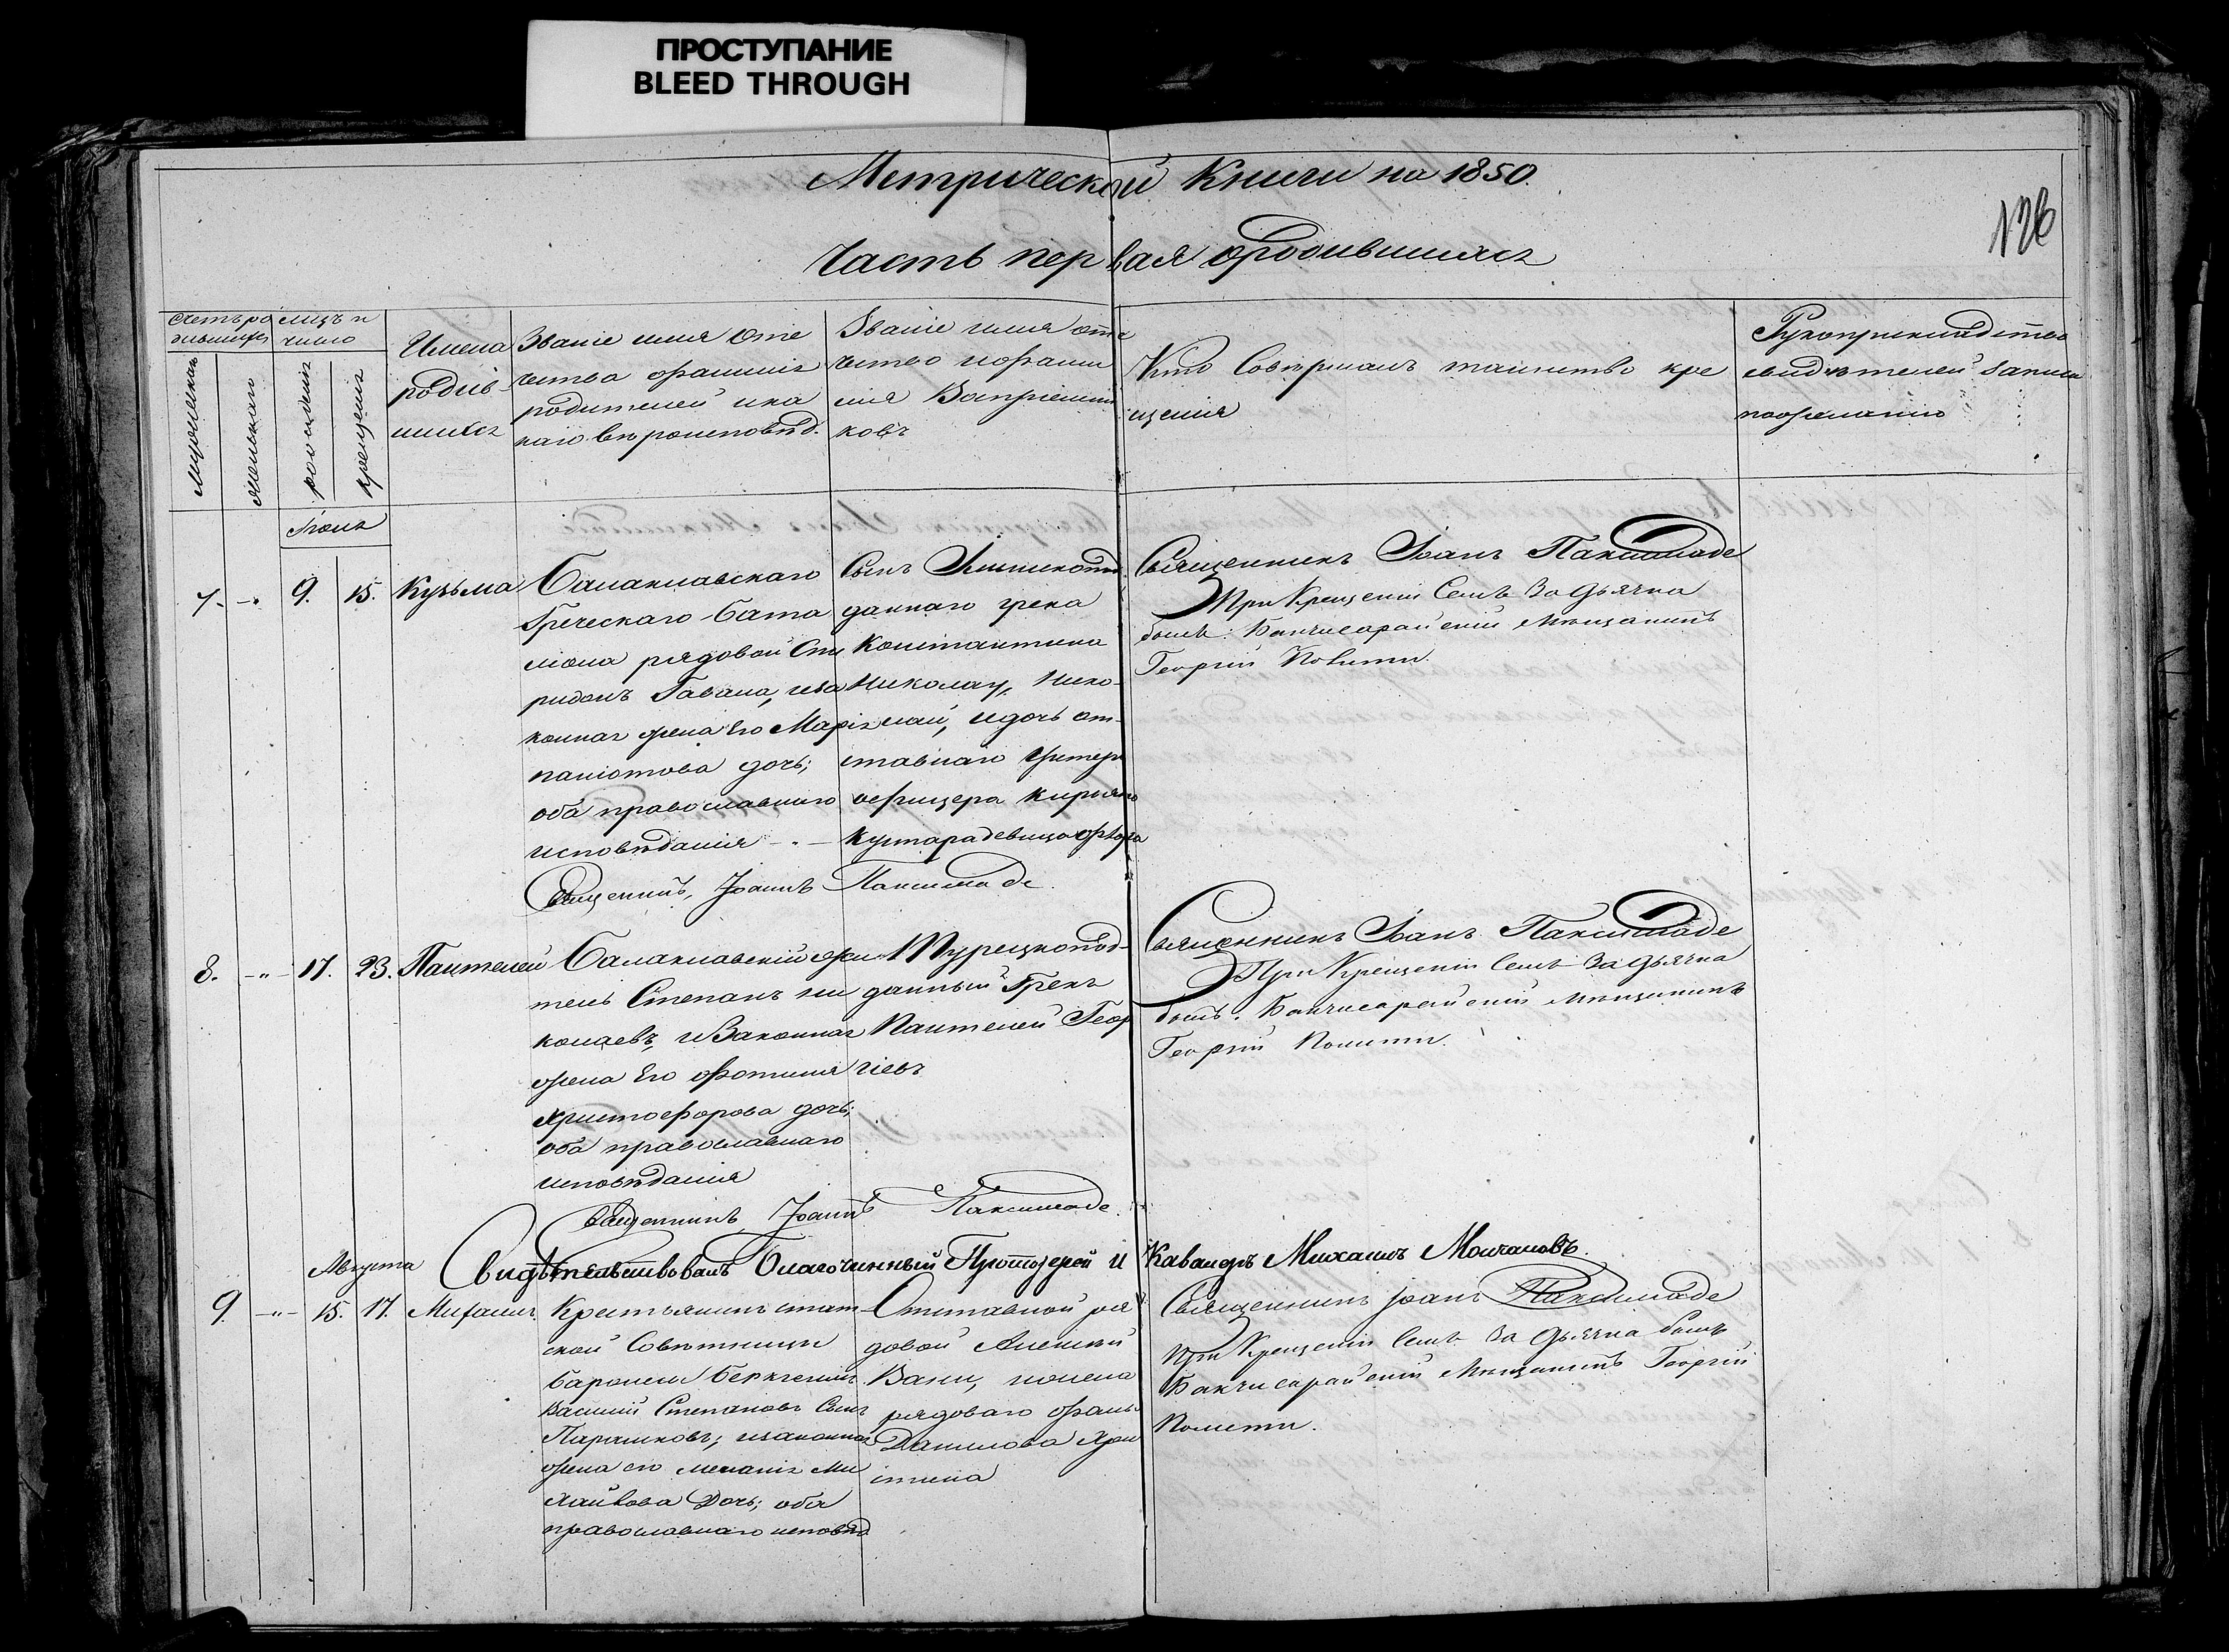 ПРОСТУПАНИЕ
BLEED THROUGH
Метрической Книги на 1850.
126
Часть первая о родившихся
Счетъ ро
дившихся
мужескаго
женскаго
месяцъ и
число
рожденія
крещенія
Имена
родив-
шихся
Званіе имя отче
ства фамилія
родителей и ка
каго вѣроисповѣд.
Званіе имя отче
ство и фами
лія Воспріемни
ковъ
Кто Совершалъ таинство кре
щенія
Рукоприкладство
свидѣтелей записи
по желанію
Іюля
7. -"- 9. 15. Кузьма
Балаклавскаго
Греческаго бата
ліона рядовой Спи
ридонъ Гавала, и за
конная жена Его Марія
паніотова дочь;
оба православнаго
исповѣданія -"-
Сынъ
даннаго грека
Константина
Николау, Нико-
лай, и дочь от-
ставнаго Унтеръ
офицера Кирьяко
девица
Священникъ, Іоаннъ Паксимаде.
Священникъ Іоанъ Паксимаде
При Крещеніи Семъ За дьячка
былъ: Бакчисарайскій Мѣщанинъ
Георгій Полити.
8. -"- 17. 23. Пантелей
Балаклавскій жи
тель Степанъ Ни
колаевъ, и Законная
жена Его Фотинія
Христофорова дочь;
оба православнаго
исповѣданія
Турецкопод-
данный Грекъ
Пантелей Геор
гіевъ
Священникъ, Іоаннъ Паксимаде.
Священникъ Іоанъ Паксимаде
При Крещеніи Семъ За дьячка
былъ: Бакчисарайскій Мѣщанинъ
Георгій Полити.
Свидѣтельствовалъ Благочинный Протоіерей и Кавалеръ Михаилъ Молчановъ.
Августа
9. -"- 15. 17. Михаилъ.
Крестьянинъ стат-
ской Совѣтницы
баронесы
Василій Степановъ Сынъ
Парашковъ; и законная
жена его Меланія Ми
хайлова Дочь; оба
православнаго исповѣд.
Отставной ря
довой Алексѣй
Вани, и жена
рядоваго
Данилова Хри
стина
Священникъ Іоанъ Паксимаде
При Крещеніи Семъ За Дьячка былъ
Бакчисарайскій Мѣщанинъ Георгій
Полити.